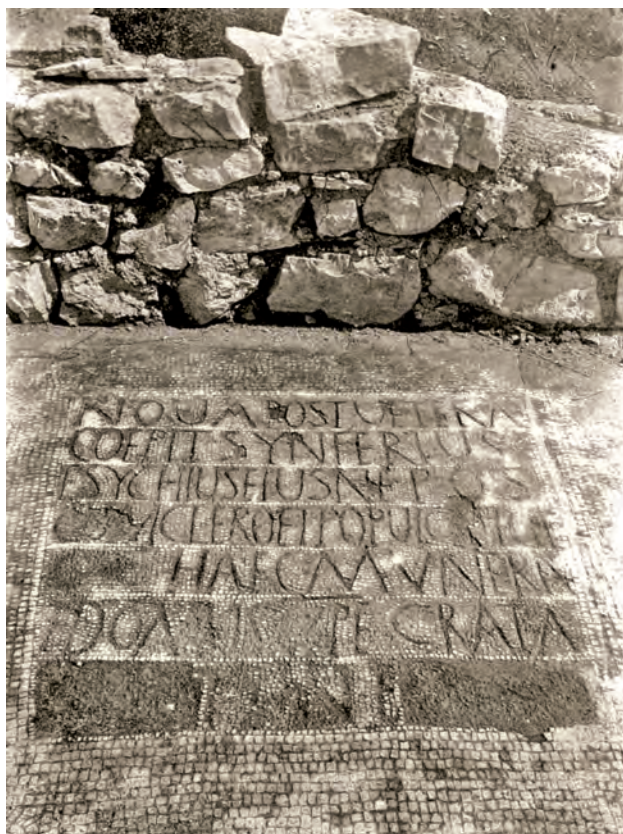 NOUA POST UETERA
COEPIT SYNFERIUS
ESYCHIUS EIUS NEPOS
CLERO ET POPULO
HAEC MUNERA
GRATA